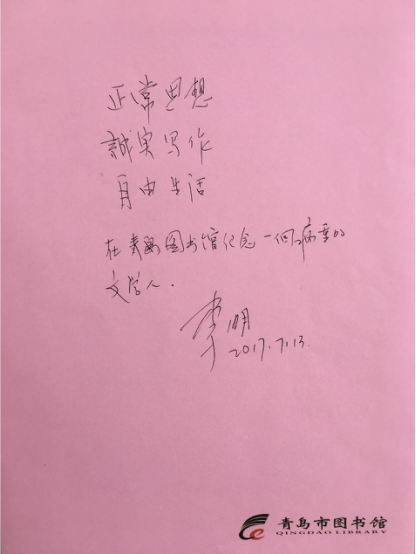 正常思想
誠实写作
自由生活
在青岛图书馆纪念一个病重的
文学人.
李明
2017.7.13.
青岛市图书馆
QINGDAO LIBRARY